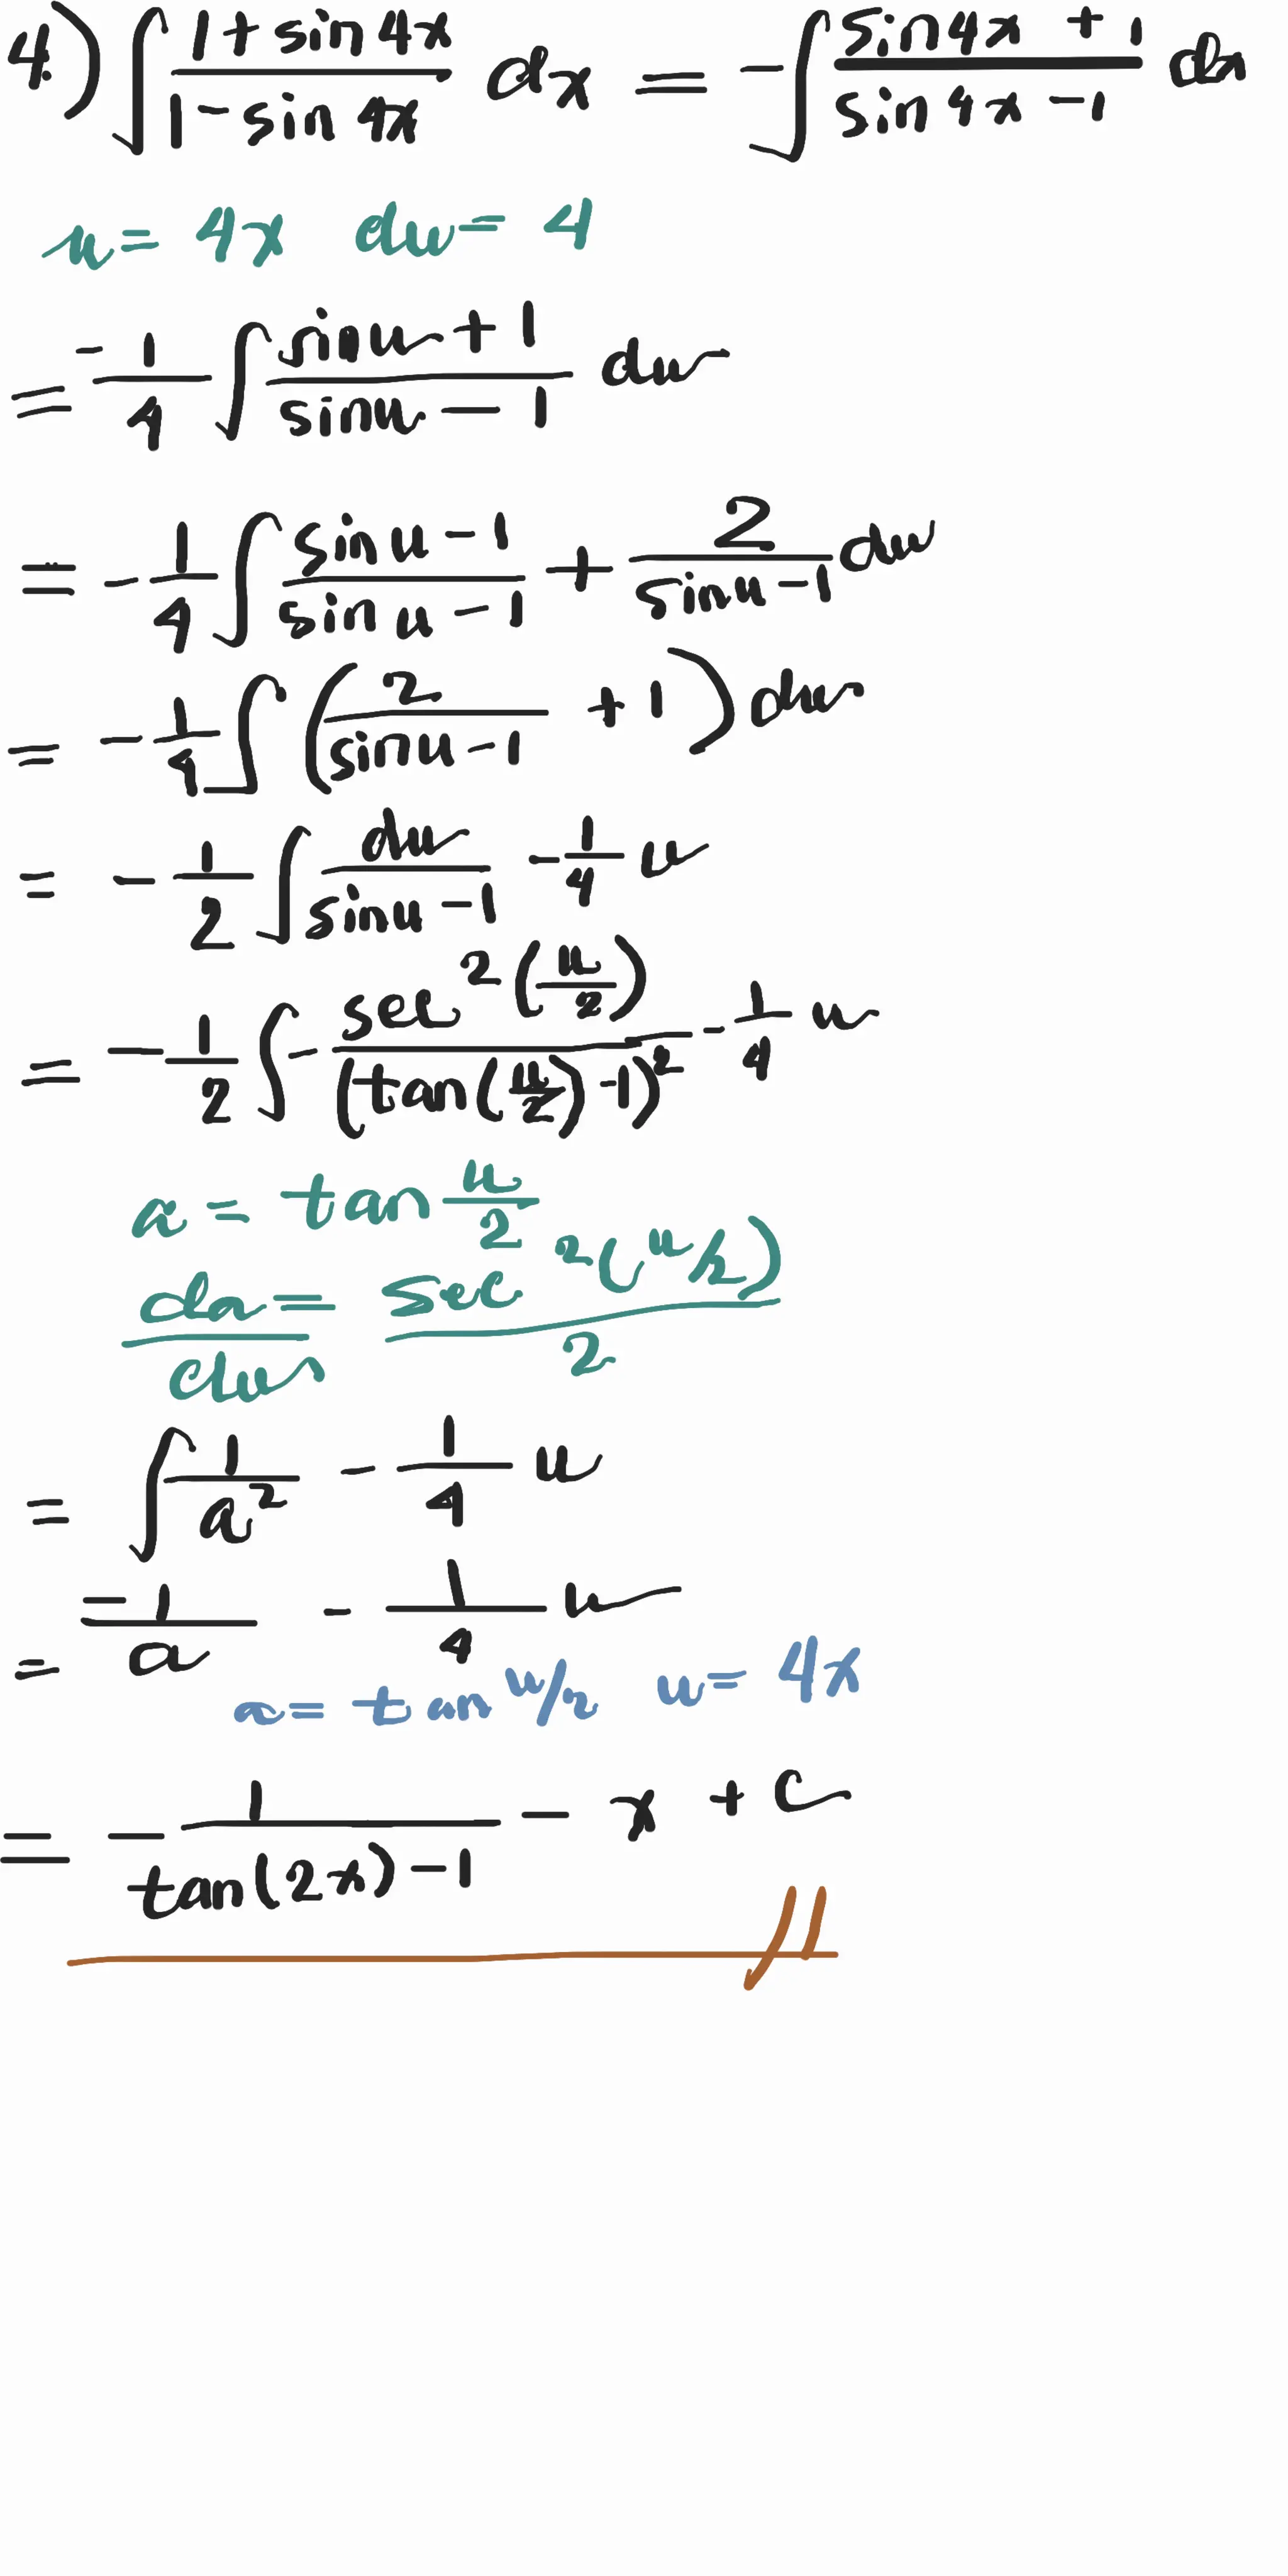 4.) ∫ (1 + sin 4x)/(1 - sin 4x) dx = - ∫ (sin 4x + 1)/(sin 4x - 1) dx
u = 4x du = 4
= -1/4 ∫ (sin u + 1)/(sin u - 1) du
= -1/4 ∫ (sin u - 1)/(sin u - 1) + 2/(sin u - 1) du
= -1/4 ∫ (2/(sin u - 1) + 1) du
= -1/2 ∫ du/(sin u - 1) - 1/4 u
= -1/2 ∫ - sec²(u/2)/(tan(u/2) - 1)² - 1/4 u
a = tan u/2
da/du = sec²(u/2)/2
= ∫ 1/a² - 1/4 u
= -1/a - 1/4 u
a = tan u/2 u = 4x
= - 1/(tan(2x) - 1) - x + C